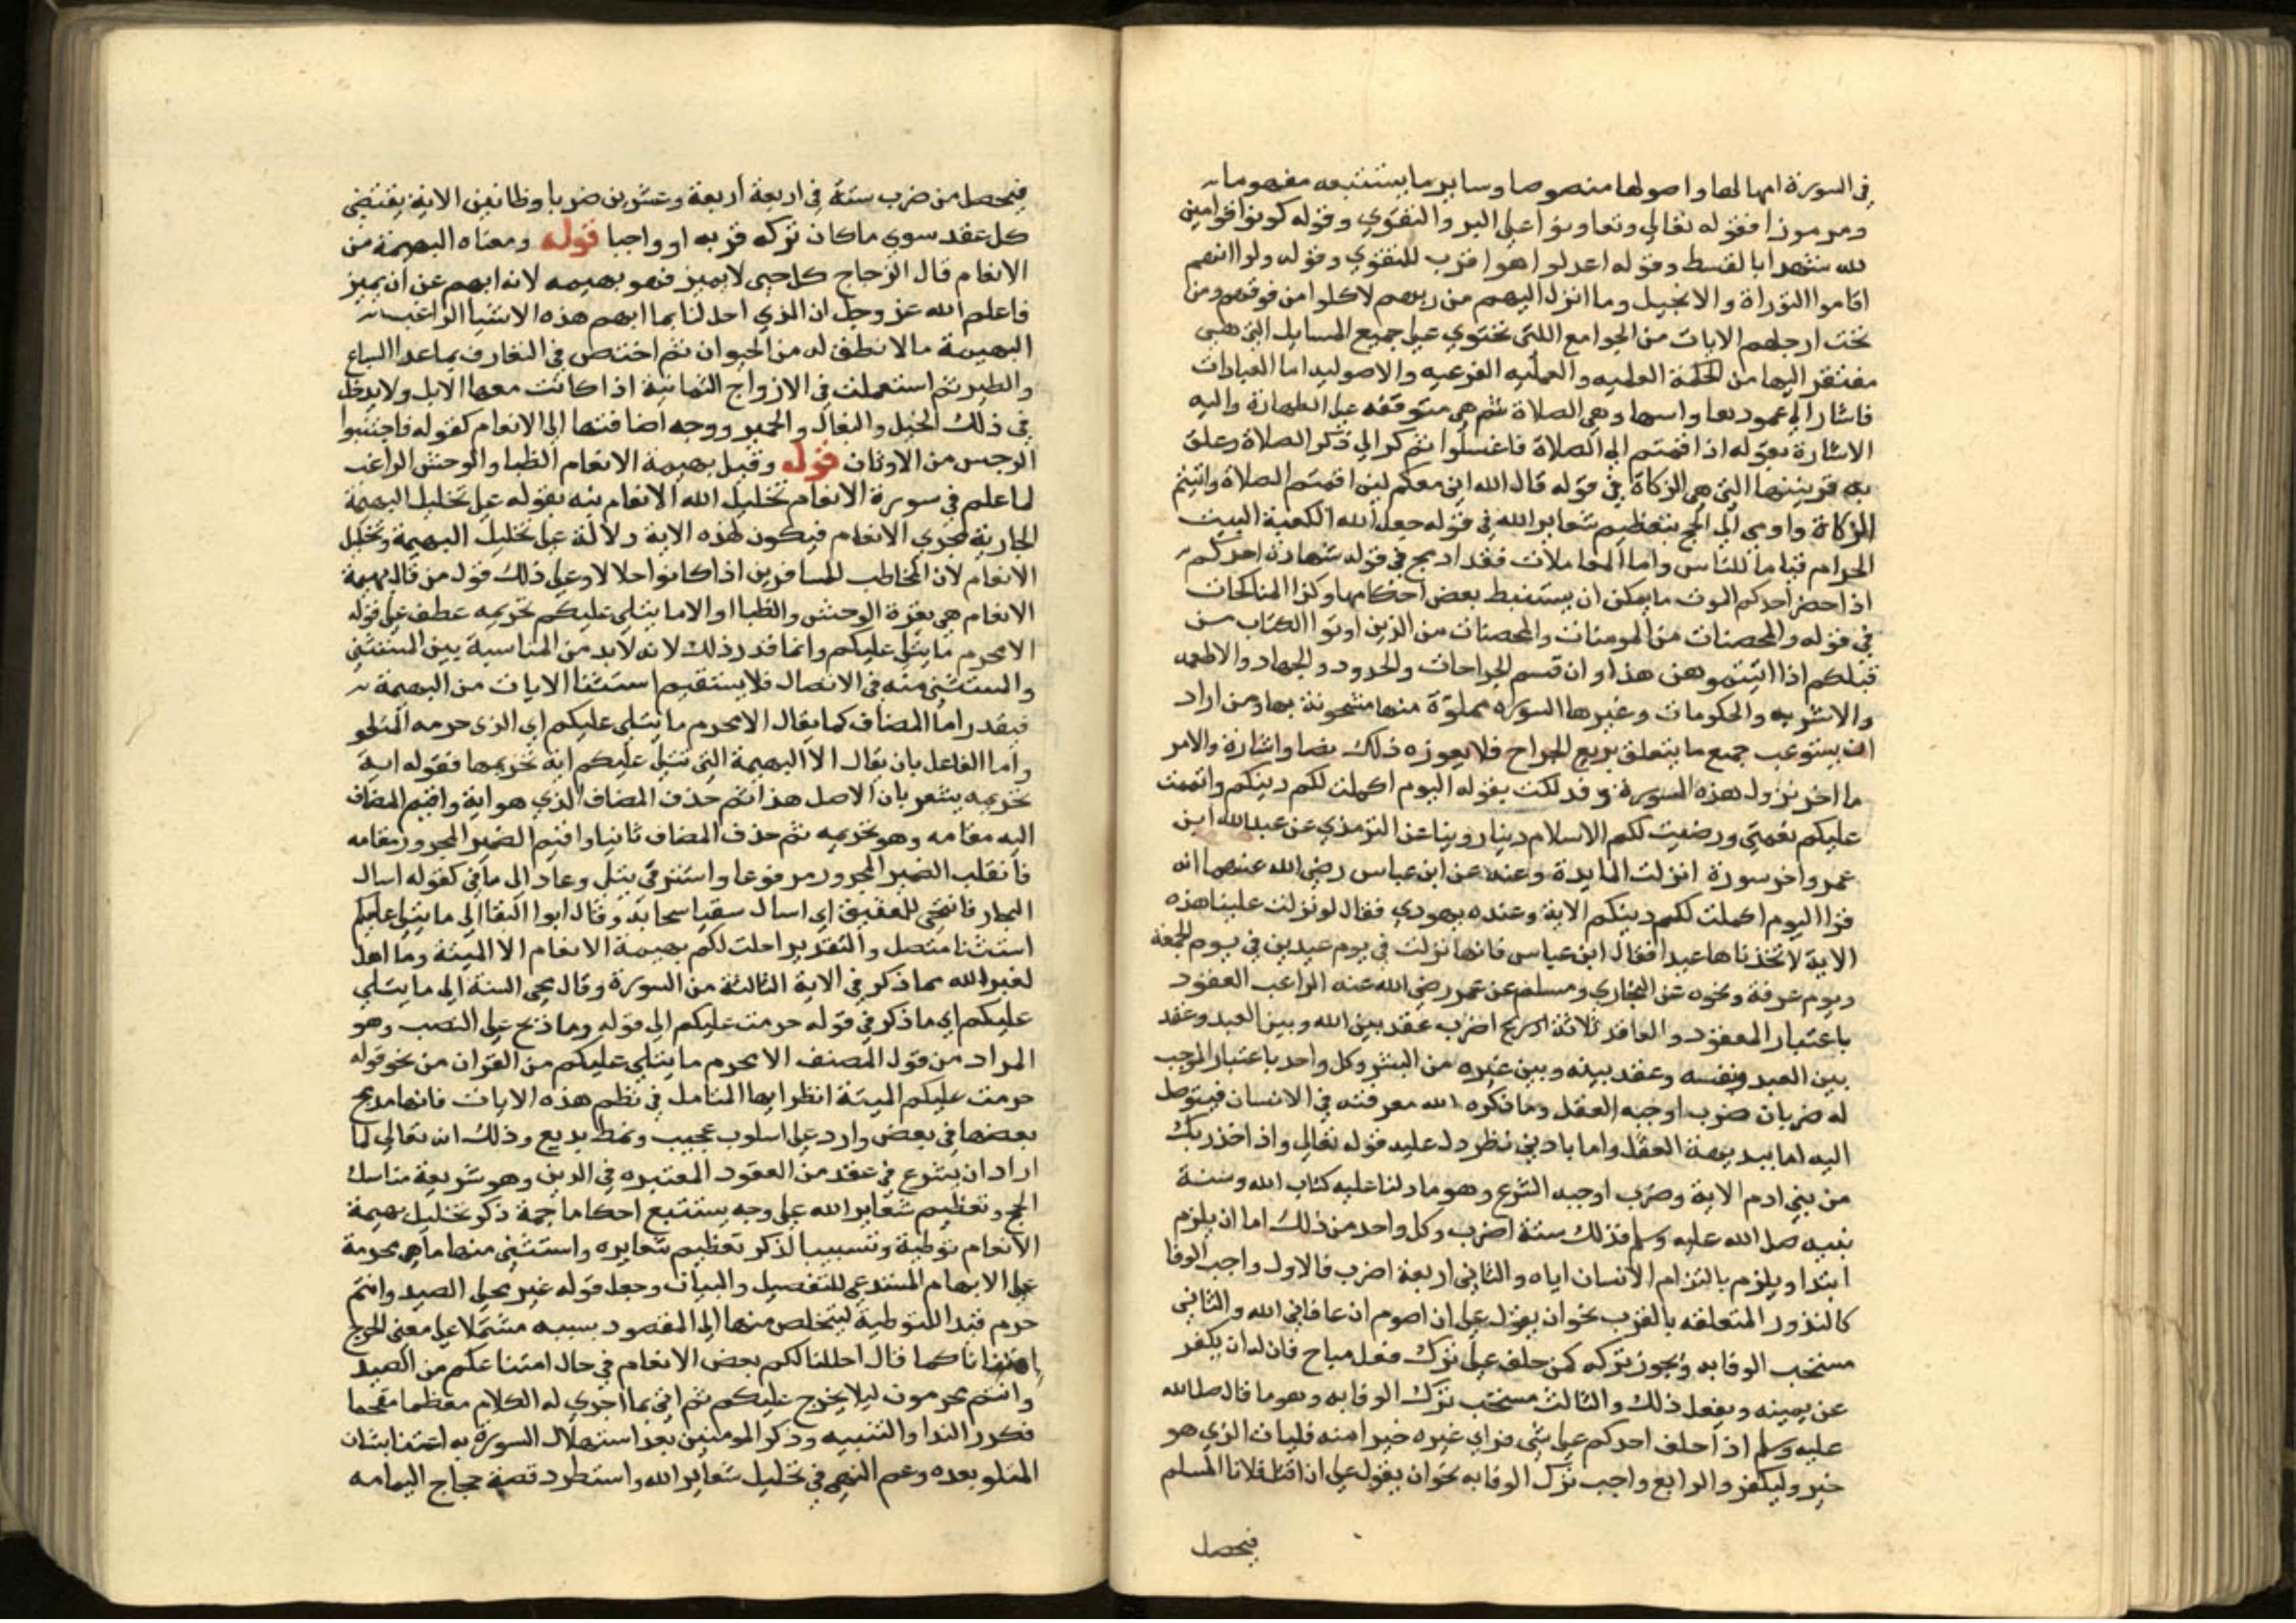 في السورة امهالها واصولها منصوصا وساير ما يستتبعه مفهوما
ومرموزا فقوله تعالي وتعاونوا علي البر والتقوي وقوله كونوا قوامين
لله شهدا بالقسط وقوله اعدلوا هو اقرب للتقوي وقوله ولو انهم
اقاموا التوراة والانجيل وما انزل اليهم من ربهم لاكلوا من فوقهم ومن
تحت ارجلهم الايات من الجوامع اللتي تحتوي علي جميع المسايل التي هي
مفتقر اليها من الحكمة العلميه والعمليه الفرعيه والاصوليه اما العبادات
فاشار الي عمودها واسها وهي الصلاة ثم هي متوقفه علي الطهارة واليه
الاشارة بقوله اذا قمتم الي الصلاة فاغسلوا ثم كر الي ذكر الصلاة وعلق
به قرينتها التي هي الزكاة في قوله قال الله اني معكم لين اقمتم الصلاة واتيتم
الزكاة واومي الي الحج بتعظيم شعاير الله في قوله جعل الله الكعبة البيت
الحرام قياما للناس واما المعاملات فقد ادمج في قوله شهادة احدكم
اذا حضر احدكم الموت ما يمكن ان يستنبط بعض احكامها وكذا المناكحات
في قوله والمحصنات من المومنات والمحصنات من الذين اوتوا الكتاب من
قبلكم اذا اتيتموهن هذا وان قسم الجراحات والحدود والجهاد والاطعمه
والاشربه والحكومات وغيرها السوره مملوة منها مشحونة بها ومن اراد
ان يستوعب جميع ما يتعلق بربع الجراح فلا يعوزه ذلك نصا واشارة والامر
ما اخر نزول هذه السورة وفذلكت بقوله اليوم اكملت لكم دينكم واتممت
عليكم نعمتي ورضيت لكم الاسلام دينا روينا عن الترمذي عن عبدالله ابن
عمرو اخر سورة انزلت المايدة وعنه عن ابن عباس رضي الله عنهما انه
قرا اليوم اكملت لكم دينكم الاية وعنده يهودي فقال لو نزلت علينا هذه
الاية لاتخذناها عيدا فقال ابن عباس فانها نزلت في يوم عيدين في يوم الجمعة
ويوم عرفة ونحوه عن البخاري ومسلم عن عمر رضي الله عنه الراغب العقود
باعتبار المعقود والعاقد ثلاثة اضرب عقد بين الله وبين العبد وعقد
بين العبد ونفسه وعقد بينه وبين غيره من البشر وكل واحد باعتبار الموجب
له ضربان ضرب اوجبه العقل وما ذكره الله معرفته في الانسان فيتوصل
اليه اما ببديهة العقل واما بادني نظر دل عليه قوله تعالي واذ اخذ ربك
من بني ادم الاية وضرب اوجبه الشرع وهو ما دلنا عليه كتاب الله وسنة
نبيه صلي الله عليه وسلم فذلك ستة اضرب وكل واحد من ذلك اما ان يلزم
ابتدا ويلزم بالتزام الانسان اياه والثاني اربعة اضرب فالاول واجب الوفا
كالنذور المتعلقه بالقرب نحو ان يقول علي ان اصوم ان عافاني الله والثاني
مستحب الوفا به ويجوز تركه كمن حلف علي ترك فعل مباح فان له ان يكفر
عن يمينه ويفعل ذلك والثالث مستحب ترك الوفا به وهو ما قال صلي الله
عليه وسلم اذا حلف احدكم علي شي فراي غيره خيرا منه فليات الذي هو
خير وليكفر والرابع واجب ترك الوفا به نحو ان يقول علي ان اقتل فلانا المسلم
فيحصل
فيحصل من ضرب ستة في اربعة اربعة وعشرين ضربا وظاهر الاية يقتضي
كل عقد سوي ما كان تركه قربه او واجبا قوله ومعناه البهيمة من
الانعام قال الزجاج كل حي لا يميز فهو بهيمه لانه ابهم عن ان يميز
فاعلم الله عز وجل ان الذي احل لنا بما ابهم هذه الاشيا الراغب
البهيمة مالا نطق له من الحيوان ثم اختص في التعارف بما عدا السباع
والطير ثم استعملت في الازواج الثمانية اذا كانت معها الابل ولا يدخل
في ذلك الخيل والبغال والحمير ووجه اضافتها الي الانعام كقوله فاجتنبوا
الرجس من الاوثان قوله وقيل بهيمة الانعام الظبا والوحش الراغب
لما علم في سورة الانعام تحليل الله الانعام نبه بقوله علي تحليل البهيمة
الجارية مجري الانعام فيكون لهذه الاية دلالة علي تحليل البهيمة وتحليل
الانعام لان المخاطب للمسافرين اذا كانوا حلالا وعلي ذلك قول من قال بهيمة
الانعام هي بقرة الوحش والظبا او الا ما يتلي عليكم تحريمه عطف علي قوله
الا محرم ما يتلي عليكم وانما قدر ذلك لانه لابد من المناسبة بين المستثني
والمستثني منه في الاتصال فلا يستقيم استثنا الايات من البهيمة
فيقدر اما المضاف كما يقال الا محرم ما يتلي عليكم اي الذي حرمه المتلو
واما الفاعل بان يقال الا البهيمة التي تتلي عليكم اية تحريمها فقوله اية
تحريمه يشعر بان الاصل هذا ثم حذف المضاف الذي هو اية واقيم المضاف
اليه مقامه وهو تحريمه ثم حذف المضاف ثانيا واقيم الضمير المجرور مقامه
فانقلب الضمير المجرور مرفوعا واستتر في يتلي وعاد الي ما في كقوله اسال
البحار فانتحي للعقيق اي اسال سقيا سحابه وقال ابوا البقا الي ما يتلي عليكم
استثنا متصل والتقدير احلت لكم بهيمة الانعام الا الميتة وما اهل
لغير الله مما ذكر في الاية الثالثة من السورة وقال محيي السنة الي ما يتلي
عليكم اي ما ذكر في قوله حرمت عليكم الي قوله وما ذبح علي النصب وهو
المراد من قول المصنف الا محرم ما يتلي عليكم من القران من نحو قوله
حرمت عليكم الميتة انظر ايها المتامل في نظم هذه الايات فانها مدمج
بعضها في بعض وارد علي اسلوب عجيب ونمط بديع وذلك انه تعالي لما
اراد ان يشرع في عقد من العقود المعتبره في الدين وهو شريعة مناسك
الحج وتعظيم شعاير الله علي وجه يستتبع احكاما جمة ذكر تحليل بهيمة
الانعام توطية وتسبيبا لذكر تعظيم شعايره واستثني منها ما هي محرمة
علي الابهام المستدعي للتفصيل والبيان وجعل قوله غير محلي الصيد وانتم
حرم قيدا للتوطية ليتخلص منها الي المقصود بسببه مشتملا علي معني الحرج
امتنانا كما قال احللنا لكم بعض الانعام في حال امتناعكم من الصيد
وانتم محرمون ليلا يخرج عليكم ثم اني بما اجري له الكلام معظما مفخما
فكرر الندا والتنبيه وذكر المومنين بعد استهلال السورة به اعتنا بشان
المتلو بعده وعم النهي في تحليل شعاير الله واستطرد قصة حجاج اليمامه